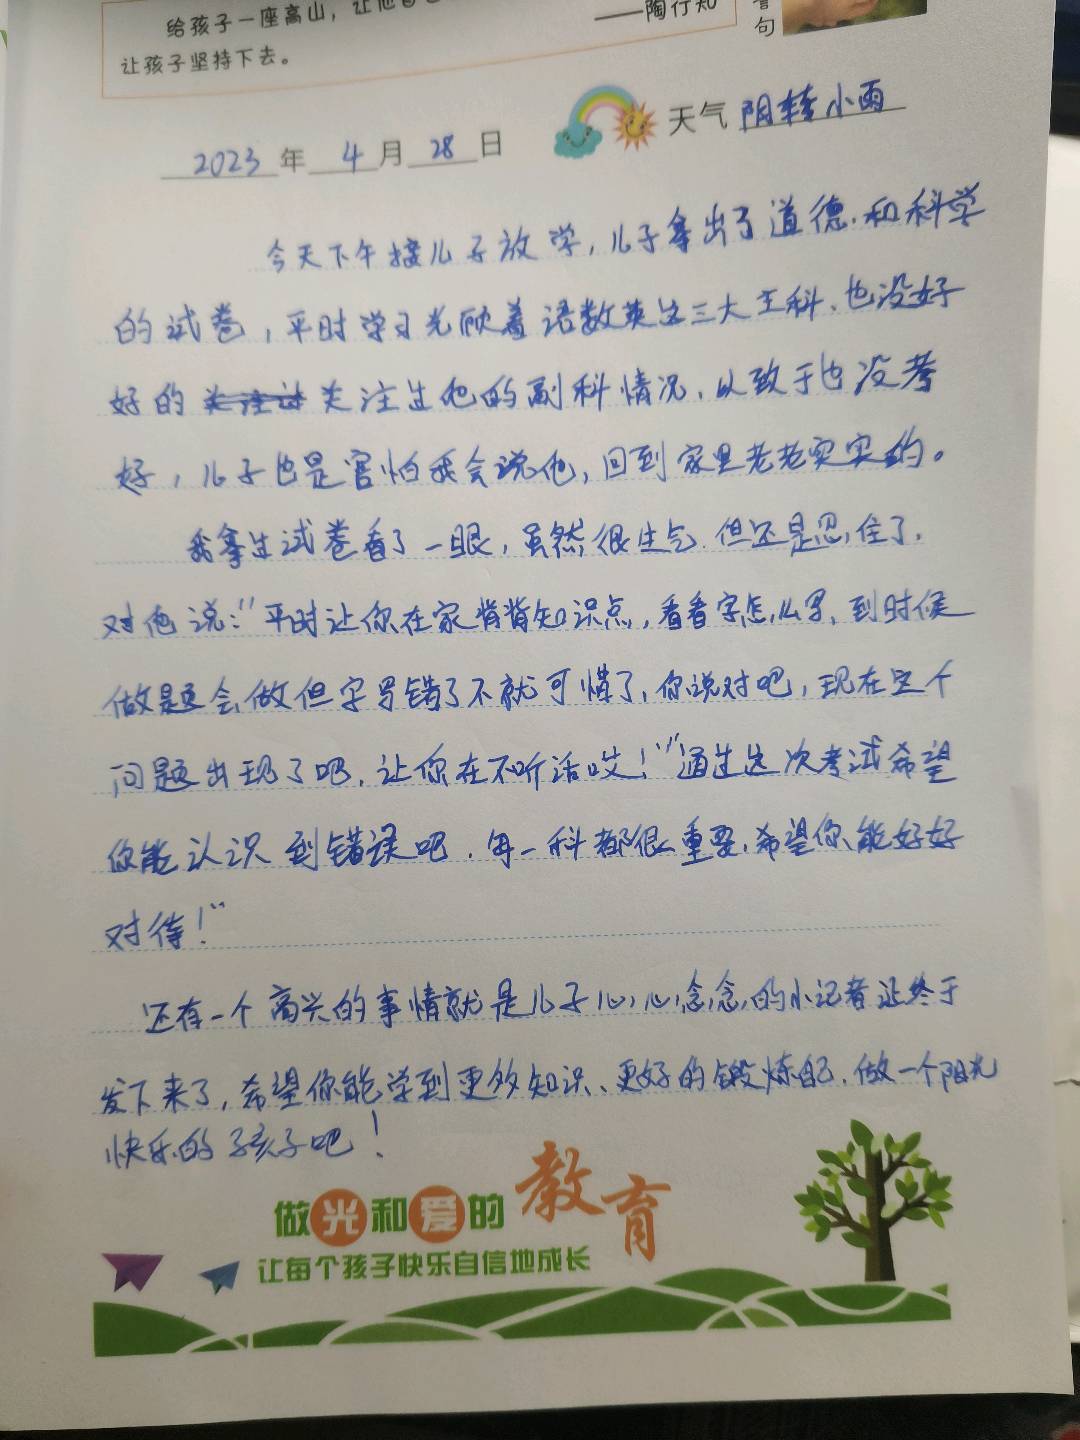 给孩子一座高山，让他自
——陶行知
让孩子坚持下去。
警句
2023年4月28日
天气 阴转小雨
今天下午接儿子放学，儿子拿出了道德、和科学
的试卷，平时学习光顾着语数英这三大主科、也没好
好的关注过他的副科情况，以致于也没考
好，儿子也是害怕我会说他，回到家里老老实实的。
我拿过试卷看了一眼，虽然很生气．但还是忍住了，
对他说：“平时让你在家背背知识点，看看字怎么写，到时候
做题会做但字写错了不就可惜了，你说对吧，现在这个
问题出现了吧，让你在不听话哎！”“通过这次考试希望
你能认识到错误吧．每一科都很重要，希望你能好好
对待！”
还有一个高兴的事情就是儿子心心念念的小记者证终于
发下来了，希望你能学到更多知识、更好的锻炼自己．做一个阳光
快乐的孩子吧！
做光和爱的教育
让每个孩子快乐自信地成长